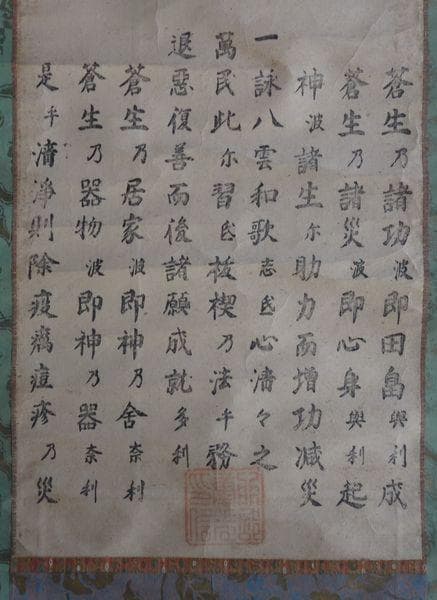 蒼生乃諸功波即田畠與利成
蒼生乃諸災波即心身與利起
神波諸生尓助力而増功减災
一詠八雲和歌志弖心清々之
萬民此尓習弖祓楔乃法乎務
退惡復善而後諸願成就多利
蒼生乃居家波即神乃舍奈利
蒼生乃器物波即神乃器奈利
是乎清淨則除疫癘痘疹乃災